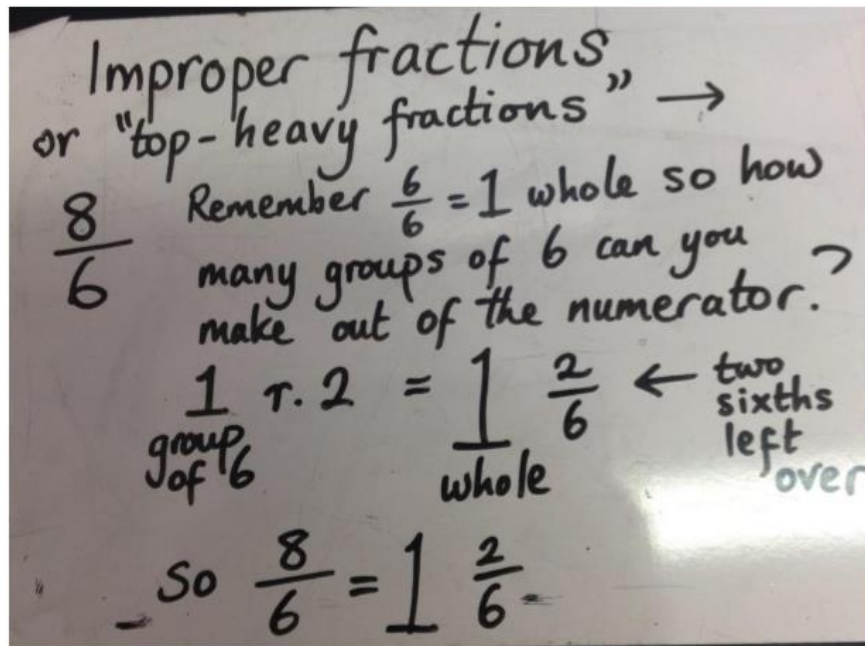 Improper fractions
or "top-heavy fractions" →
8/6 Remember 6/6 = 1 whole so how
many groups of 6 can you
make out of the numerator.?
1 r. 2 = 1 2/6 ← two
sixths
left
over
group
of 6
whole
So 8/6 = 1 2/6